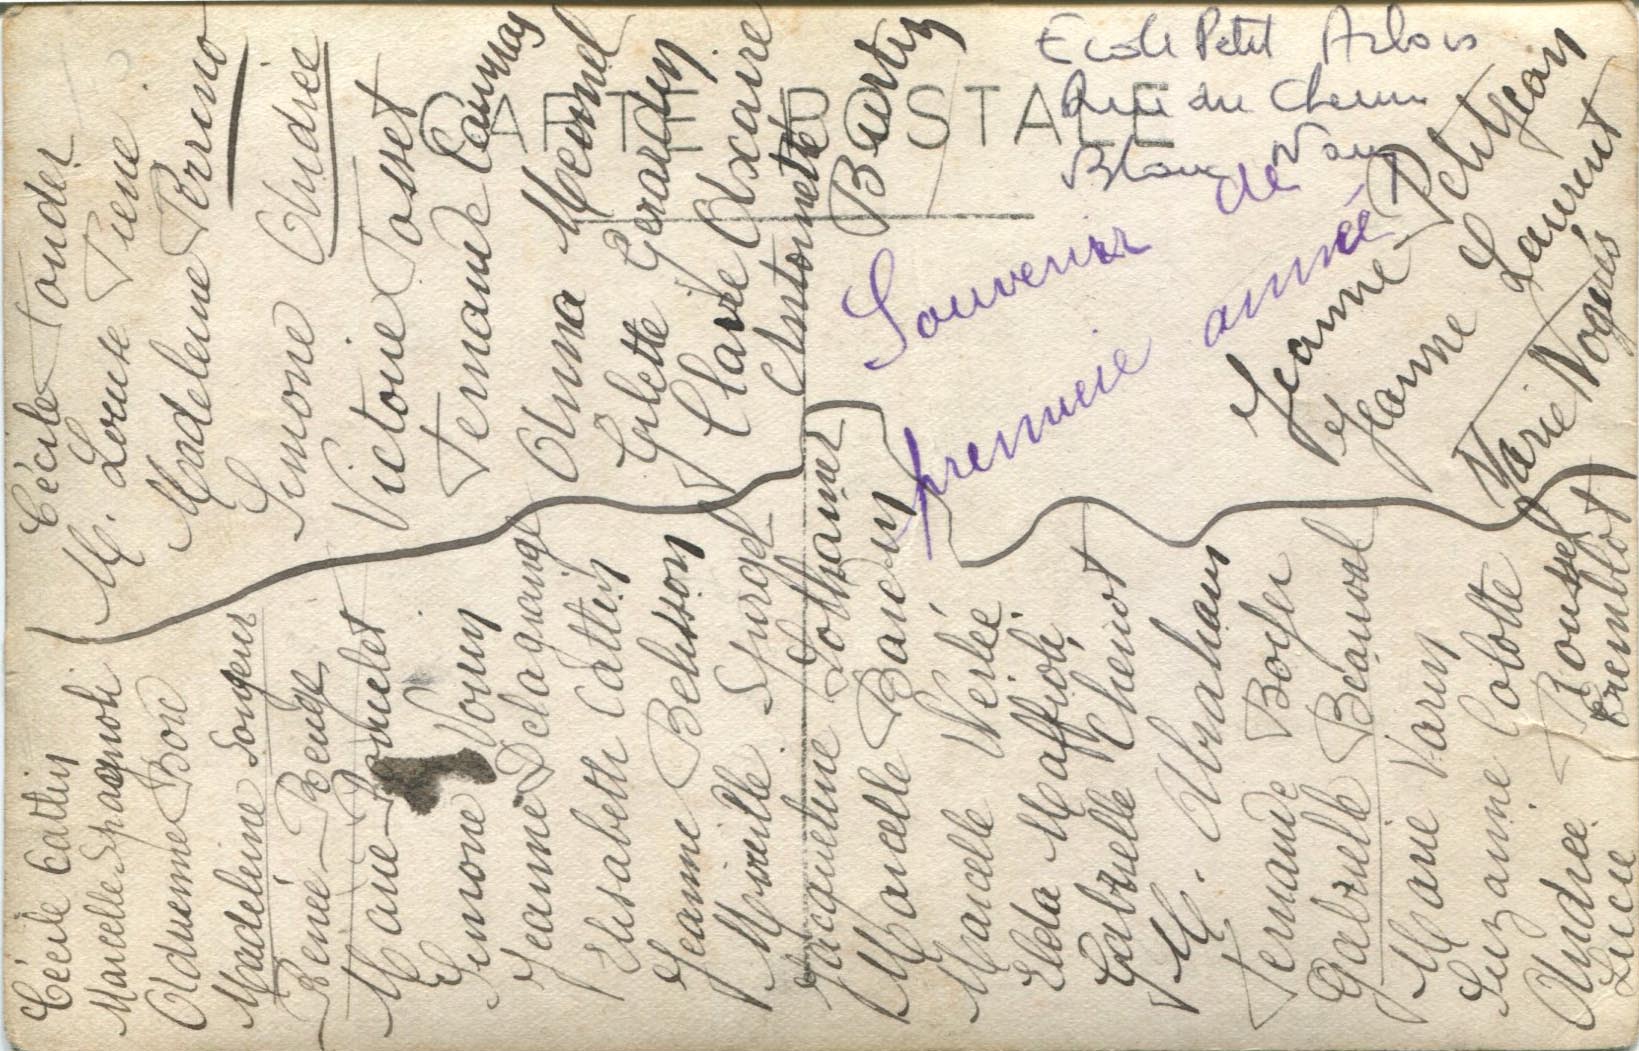 CARTE POSTALE
Ecole Petit Arbois
Rue du Chemin
Blanc Nancy
Souvenir de
première année
Cécile Tonder
M. Louise Piene
Madeleine Perrino
Simone Andrée
Victoire Tosset
Fernande Caurnay
Anna Meinnel
Gilette Gerardin
Claire Axaire
Antoinette
Burtin
Jeanne Petitjean
Jeanne Laurent
Marie Nogués
Cécile Cattin
Marcelle Spagnoli
Aduenne Boré
Madeleine Songeur
Renée Beuge
Marie Poncelet
Simone Voury
Jeanne Delagrange
Elisabeth Cattin
Jeanne Belisson
Mireille Spirgel
Jacqueline Lothamer
Marcelle Baudin
Marcelle Nerlée
Elda Maffioli
Gabrielle Chenot
M. Abraham
Fernande Boyer
Gabrielle Beauval
Marie Varin
Suzanne Colotte
Andrée Roussel
Lucie Tremblot